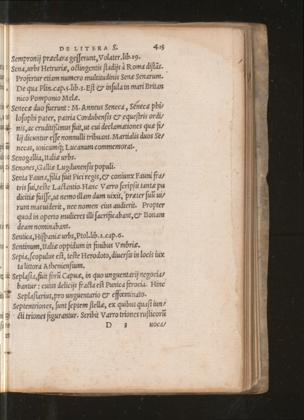 DE LITERA S. 415
Sempronij præclara gesserunt, Volater. lib. 19.
Sena, urbs Hetruriæ, octingentis stadijs à Roma distãs.
Profertur etiam numero multitudinis Senæ Senarum.
De qua Plin. cap. 5. lib. 3. Est & insula in mari Britan
nico Pomponio Melæ.
Senecæ duo fuerunt: M. Anneus Seneca, Senecæ phi
losophi pater, patria Cordubensis & equestris ordi
nis, ac eruditißimus fuit, ut eui declamationes quæ fi
lij dicuntur esse nonnulli tribuunt. Martialis duos Se
necas, unicumq; Lucanum commemorat.
Senogallia, Italiæ urbs.
Senones, Galliæ Lugdunensis populi.
Senta Fauna, filia fuit Pici regis, & coniunx Fauni fra
tris sui, teste Lactantio. Hanc Varro scripsit tantæ pu
dicitiæ fuisse, ut nemo illam dum uixit, præter suũ ui-
rum maruiderit, nec nomen eius audierit. Propter
quod in operto mulieres illi sacrificabant, & Bonam
deam nominabant.
Sentica, Hispaniæ urbs, Ptol. lib. 2. cap. 6.
Sentinum, Italiæ oppidum in finibus Vmbriæ.
Sepia, scopulus est, teste Herodoto, diuersa in locis iux
ta littora Atheniensium.
Seplasia, fuit forũ Capuæ, in quo unguentarij negocia
bantur: cuius delicijs fracta est Punica ferocia. Hinc
Seplasiarius, pro unguentario & effœminato.
Septentriones, sunt septem stellæ, ex quibus quasi iun
cti triones figurantur. Scribit Varro triones rusticorũ
D 8 uoca/